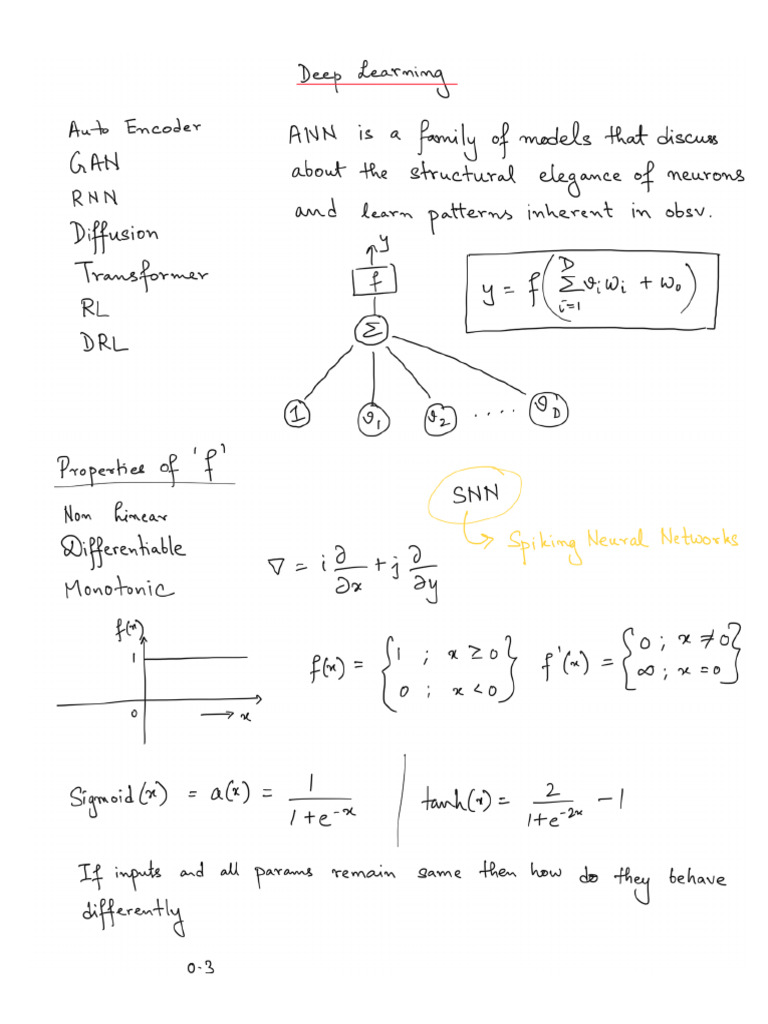 Deep Learning
Auto Encoder
GAN
RNN
Diffusion
Transformer
RL
DRL
ANN is a family of models that discuss
about the structural elegance of neurons
and learn patterns inherent in obsv.
y
f
Σ
1 ϑ₁ ϑ₂ .... ϑ_D
y = f(Σ_{i=1}^{D} ϑᵢ ωᵢ + ω₀)
Properties of 'f'
Non linear
Differentiable
Monotonic
SNN
Spiking Neural Networks
∇ = i ∂/∂x + j ∂/∂y
f(x)
1
0 → x
f(x) = {1 ; x ≥ 0
0 ; x < 0}
f'(x) = {0 ; x ≠ 0
∞ ; x = 0}
Sigmoid(x) = a(x) = 1/(1+e^{-x})
tanh(x) = 2/(1+e^{-2x}) - 1
If inputs and all params remain same then how do they behave
differently
0.3